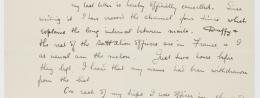 my last wire is hereby officially cancelled. Since
writing it I have crossed the channel four times which
explains the long interval between mails. Duffy &
the rest of the Battalion officers are in France & I
as usual am the melon. Just two hours before
they left I hear that my name has been withdrawn
from the list
On each of my trips I was officer in